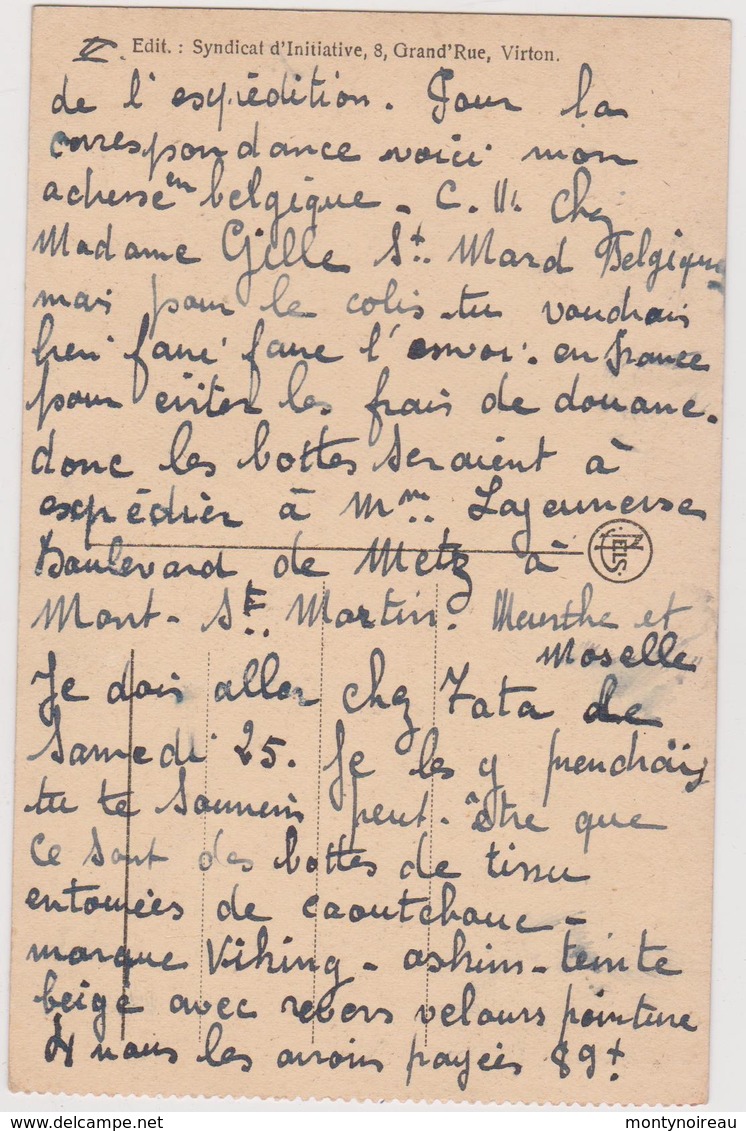 II. Edit. : Syndicat d'Initiative, 8, Grand'Rue, Virton.
de l'expédition. Pour la
correspondance voici mon
adresse en belgique - C. chez
Madame Gille St. Mard Belgique
mais pour le colis tu voudrais
bien faire faire l'envoi en france
pour éviter les frais de douane.
donc les bottes seraient à
expédier à Mme. Lajeunesse
Boulevard de Metz à
Mont-St. Martin. Meurthe et
Moselle
Je dois aller chez Tata de
Samedi 25. Je les y prendrais
tu te souviens peut-être que
ce sont des bottes de tissu
entourées de caoutchouc -
marque Viking - askim - teinte
beige avec revers velours pointure
nous les avions payées 89f.
delcampe.net
montynoireau